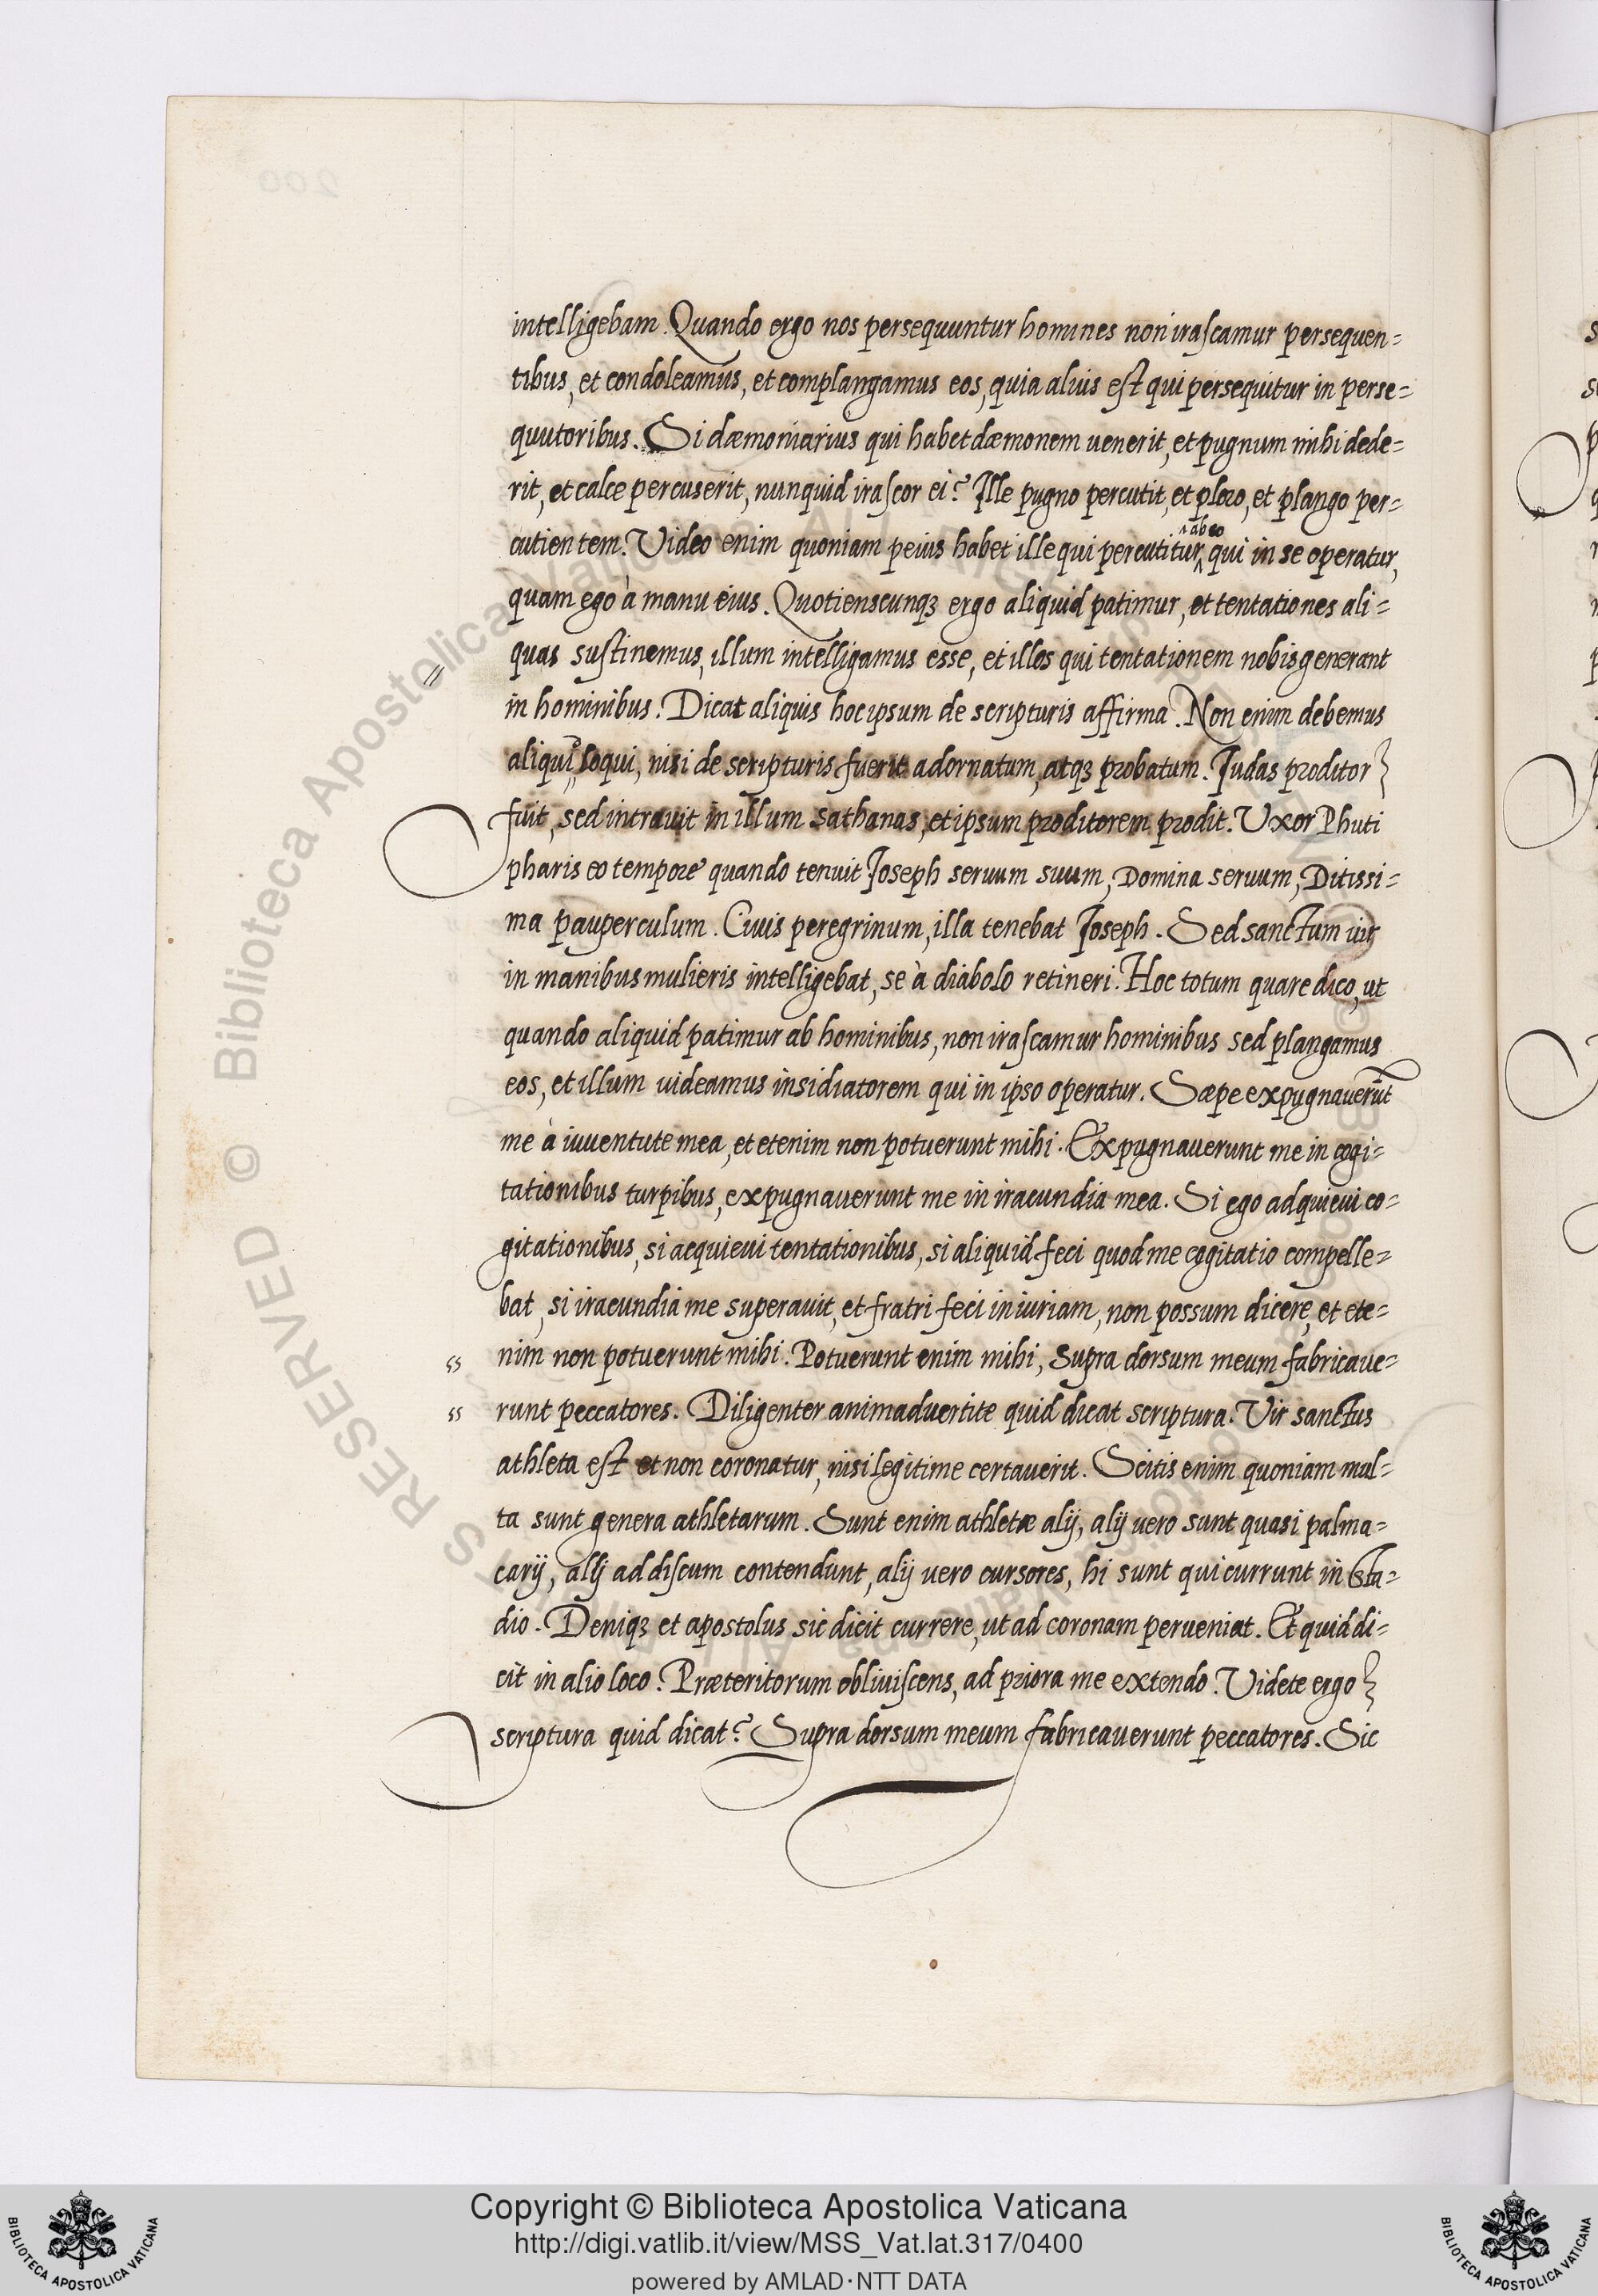 intelligebam. Quando ergo nos persequuntur homines non irascamur persequen=
tibus, et condoleamus, et complangamus eos, quia alius est qui persequitur in perse=
quutoribus. Si dæmoniarius qui habet dæmonem uenerit, et pugnum mihi dede=
rit, et calce percuserit, nunquid irascor ei? Ille pugno percutit, et ploro, et plango per=
cutientem. Video enim quoniam peius habet ille qui percutitur ^ab eo^ qui in se operatur,
quam ego à manu eius. Quotienscunqȝ ergo aliquid patimur, et tentationes ali=
quas sustinemus, illum intelligamus esse, et illos qui tentationem nobis generant
in hominibus. Dicat aliquis hoc ipsum de scripturis affirma. Non enim debemus
loqui, nisi de scripturis fuerit adornatum, atqȝ probatum. Iudas proditor
fuit, sed intrauit in illum sathanas, et ipsum proditorem prodit. Uxor Phuti
pharis eo tempore quando tenuit Ioseph seruum suum, Domina seruum, Ditissi=
ma pauperculum. Ciuis peregrinum, illa tenebat Ioseph. Sed sanctum uir
in manibus mulieris intelligebat, se à diabolo retineri. Hoc totum quare dico, ut
quando aliquid patimur ab hominibus, non irascamur hominibus sed plangamus
eos, et illum uideamus insidiatorem qui in ipso operatur. Sæpe expugnauerūt
me à iuuentute mea, et etenim non potuerunt mihi. Expugnauerunt me in cogi=
tationibus turpibus, expugnauerunt me in iracundia mea. Si ego adquieui co=
gitationibus, si acquieui tentationibus, si aliquid feci quod me cogitatio compelle=
bat, si iracundia me superauit, et fratri feci iniuriam, non possum dicere, et ete=
nim non potuerunt mihi. Potuerunt enim mihi, Supra dorsum meum fabricaue=
runt peccatores. Diligenter animaduertite quid dicat scriptura. Vir sanctus
athleta est et non coronatur, nisi legitime certauerit. Scitis enim quoniam mul=
ta sunt genera athletarum. Sunt enim athletæ alij, alij uero sunt quasi palma=
carij, alij ad discum contendunt, alij uero cursores, hi sunt qui currunt in sta=
dio. Deniqȝ et apostolus sic dicit currere, ut ad coronam perueniat. Et quid di=
cit in alio loco? Præteritorum obliuiscens, ad priora me extendo. Videte ergo
scriptura quid dicat? Supra dorsum meum fabricauerunt peccatores. Sic
© Biblioteca Apostolica Vaticana ALL RIGHTS RESERVED
Copyright © Biblioteca Apostolica Vaticana
http://digi.vatlib.it/view/MSS_Vat.lat.317/0400
powered by AMLAD·NTT DATA
BIBLIOTECA APOSTOLICA VATICANA
BIBLIOTECA APOSTOLICA VATICANA